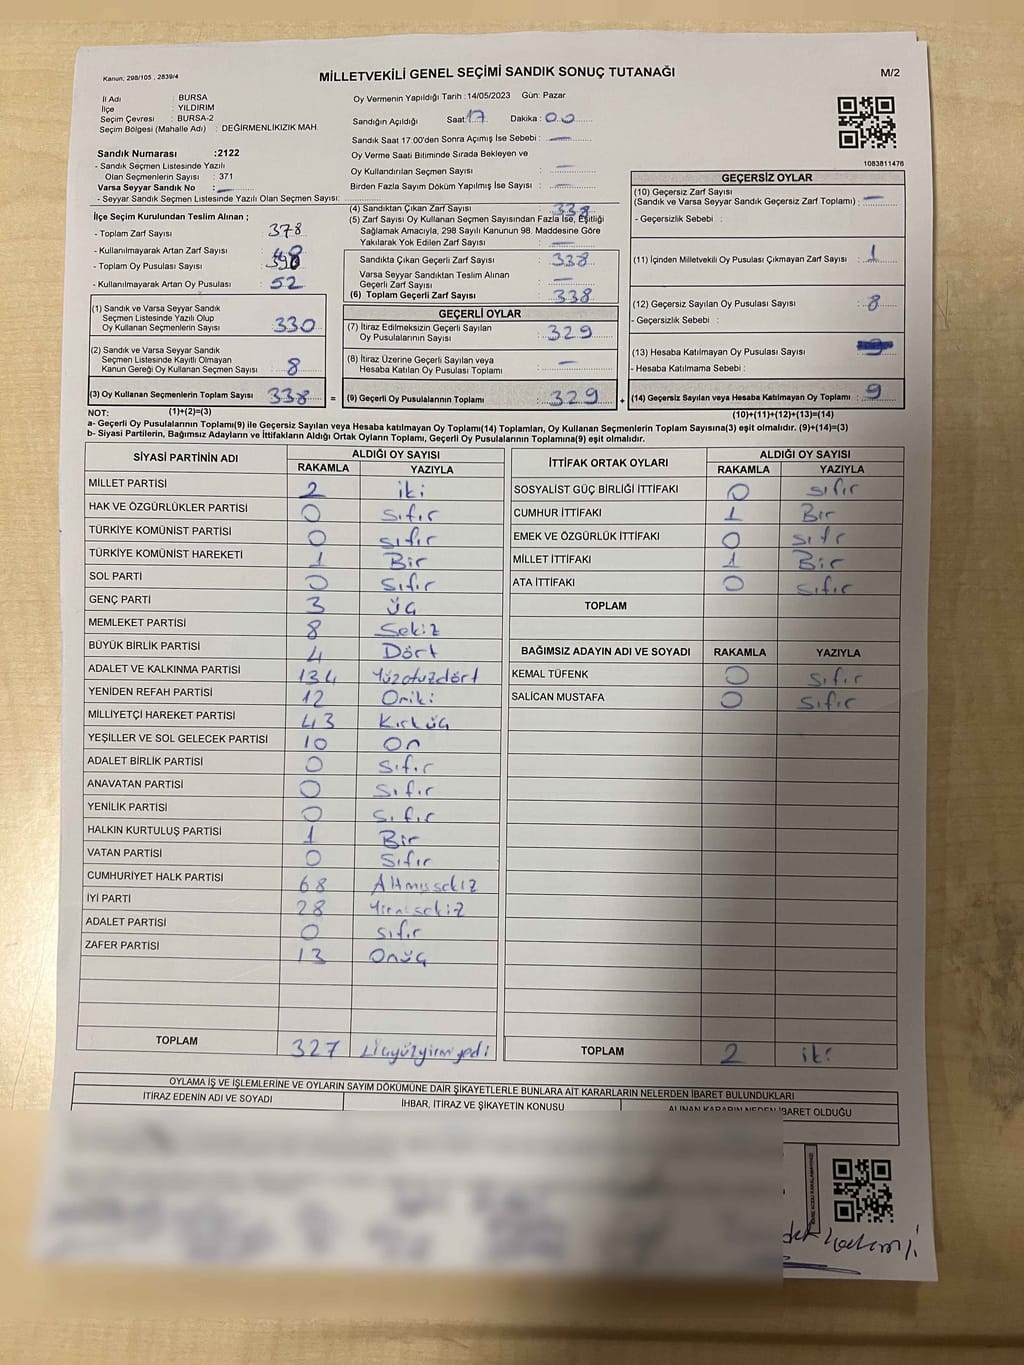 Kanun: 298/105 , 2839/4
MİLLETVEKİLİ GENEL SEÇİMİ SANDIK SONUÇ TUTANAĞI
M/2
İl Adı : BURSA
İlçe : YILDIRIM
Seçim Çevresi : BURSA-2
Seçim Bölgesi (Mahalle Adı) : DEĞİRMENLİKIZIK MAH.
Oy Vermenin Yapıldığı Tarih : 14/05/2023 Gün: Pazar
Sandığın Açıldığı Saat: 17 Dakika : 00
Sandık Saat 17:00'den Sonra Açmış İse Sebebi : —
Oy Verme Saati Bitiminde Sırada Bekleyen ve
Oy Kullandırılan Seçmen Sayısı : —
Birden Fazla Sayım Döküm Yapılmış İse Sayısı : —
1083811476
Sandık Numarası :2122
- Sandık Seçmen Listesinde Yazılı
Olan Seçmenlerin Sayısı : 371
Varsa Seyyar Sandık No : —
- Seyyar Sandık Seçmen Listesinde Yazılı Olan Seçmen Sayısı:
İlçe Seçim Kurulundan Teslim Alınan ;
- Toplam Zarf Sayısı : 378
- Kullanılmayarak Artan Zarf Sayısı :
- Toplam Oy Pusulası Sayısı :
- Kullanılmayarak Artan Oy Pusulası : 52
(1) Sandık ve Varsa Seyyar Sandık
Seçmen Listesinde Yazılı Olup
Oy Kullanan Seçmenlerin Sayısı : 330
(2) Sandık ve Varsa Seyyar Sandık
Seçmen Listesinde Kayıtlı Olmayan
Kanun Gereği Oy Kullanan Seçmen Sayısı : 8
(3) Oy Kullanan Seçmenlerin Toplam Sayısı : 338 =
(4) Sandıktan Çıkan Zarf Sayısı : 338
(5) Zarf Sayısı Oy Kullanan Seçmen Sayısından Fazla İse, Eşitliği
Sağlamak Amacıyla, 298 Sayılı Kanunun 98. Maddesine Göre
Yakılarak Yok Edilen Zarf Sayısı : —
Sandıkta Çıkan Geçerli Zarf Sayısı : 338
Varsa Seyyar Sandıktan Teslim Alınan
Geçerli Zarf Sayısı : —
(6) Toplam Geçerli Zarf Sayısı : 338
GEÇERLİ OYLAR
(7) İtiraz Edilmeksizin Geçerli Sayılan
Oy Pusulalarının Sayısı : 329
(8) İtiraz Üzerine Geçerli Sayılan veya
Hesaba Katılan Oy Pusulası Toplamı : —
(9) Geçerli Oy Pusulalarının Toplamı : 329 +
GEÇERSİZ OYLAR
(10) Geçersiz Zarf Sayısı
(Sandık ve Varsa Seyyar Sandık Geçersiz Zarf Toplamı) : —
- Geçersizlik Sebebi :
(11) İçinden Milletvekili Oy Pusulası Çıkmayan Zarf Sayısı : 1
(12) Geçersiz Sayılan Oy Pusulası Sayısı : 8
- Geçersizlik Sebebi :
(13) Hesaba Katılmayan Oy Pusulası Sayısı :
- Hesaba Katılmama Sebebi :
(14) Geçersiz Sayılan veya Hesaba Katılmayan Oy Toplamı : 9
NOT: (1)+(2)=(3) (10)+(11)+(12)+(13)=(14)
a- Geçerli Oy Pusulalarının Toplamı(9) ile Geçersiz Sayılan veya Hesaba Katılmayan Oy Toplamı(14) Toplamları, Oy Kullanan Seçmenlerin Toplam Sayısına(3) eşit olmalıdır. (9)+(14)=(3)
b- Siyasi Partilerin, Bağımsız Adayların ve İttifakların Aldığı Ortak Oyların Toplamı, Geçerli Oy Pusulalarının Toplamına(9) eşit olmalıdır.
SİYASİ PARTİNİN ADI ALDIĞI OY SAYISI
RAKAMLA YAZIYLA
MİLLET PARTİSİ 2 iki
HAK VE ÖZGÜRLÜKLER PARTİSİ 0 sıfır
TÜRKİYE KOMÜNİST PARTİSİ 0 sıfır
TÜRKİYE KOMÜNİST HAREKETİ 1 Bir
SOL PARTİ 0 Sıfır
GENÇ PARTİ 3 üç
MEMLEKET PARTİSİ 8 Sekiz
BÜYÜK BİRLİK PARTİSİ 4 Dört
ADALET VE KALKINMA PARTİSİ 134 Yüzotuzdört
YENİDEN REFAH PARTİSİ 12 Oniki
MİLLİYETÇİ HAREKET PARTİSİ 43 Kırküç
YEŞİLLER VE SOL GELECEK PARTİSİ 10 On
ADALET BİRLİK PARTİSİ 0 Sıfır
ANAVATAN PARTİSİ 0 Sıfır
YENİLİK PARTİSİ 0 Sıfır
HALKIN KURTULUŞ PARTİSİ 1 Bir
VATAN PARTİSİ 0 Sıfır
CUMHURİYET HALK PARTİSİ 68 Altmışsekiz
İYİ PARTİ 28 Yirmisekiz
ADALET PARTİSİ 0 sıfır
ZAFER PARTİSİ 13 Onüç
TOPLAM 327 Üçyüzyirmiyedi
İTTİFAK ORTAK OYLARI ALDIĞI OY SAYISI
RAKAMLA YAZIYLA
SOSYALİST GÜÇ BİRLİĞİ İTTİFAKI 0 sıfır
CUMHUR İTTİFAKI 1 Bir
EMEK VE ÖZGÜRLÜK İTTİFAKI 0 sıfr
MİLLET İTTİFAKI 1 Bir
ATA İTTİFAKI 0 sıfır
TOPLAM
BAĞIMSIZ ADAYIN ADI VE SOYADI RAKAMLA YAZIYLA
KEMAL TÜFENK 0 sıfır
SALİCAN MUSTAFA 0 sıfır
TOPLAM 2 iki
OYLAMA İŞ VE İŞLEMLERİNE VE OYLARIN SAYIM DÖKÜMÜNE DAİR ŞİKAYETLERLE BUNLARA AİT KARARLARIN NELERDEN İBARET BULUNDUKLARI
İTİRAZ EDENİN ADI VE SOYADI İHBAR, İTİRAZ VE ŞİKAYETİN KONUSU ALINAN KARARIN NEDEN İBARET OLDUĞU